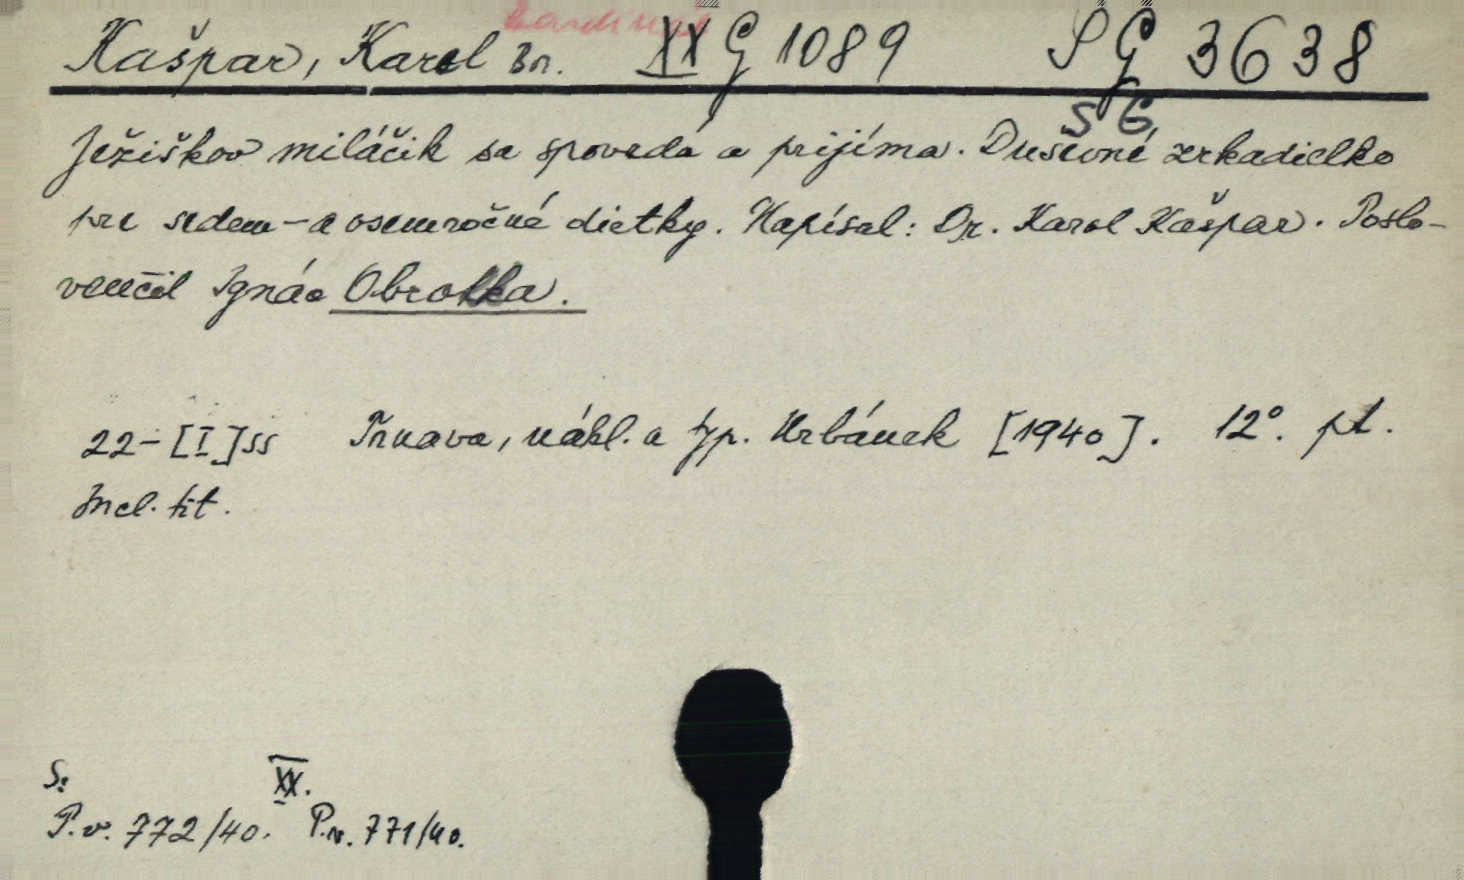 kardinál
Kašpar, Karel Dr. XX G 1089 S G 3638
S G
Ježiškov miláčik sa spovedá a prijíma. Duševné zrkadielko
pre sedem-a osemročné dietky. Napísal: Dr. Karol Kašpar. Poslo-
venčil Ignác Obrotka.
22-[I]ss Trnava, nákl. a typ. Urbánek [1940]. 12°. pl.
Incl. tit.
S: XX.
P.v. 772/40. P.v. 771/40.